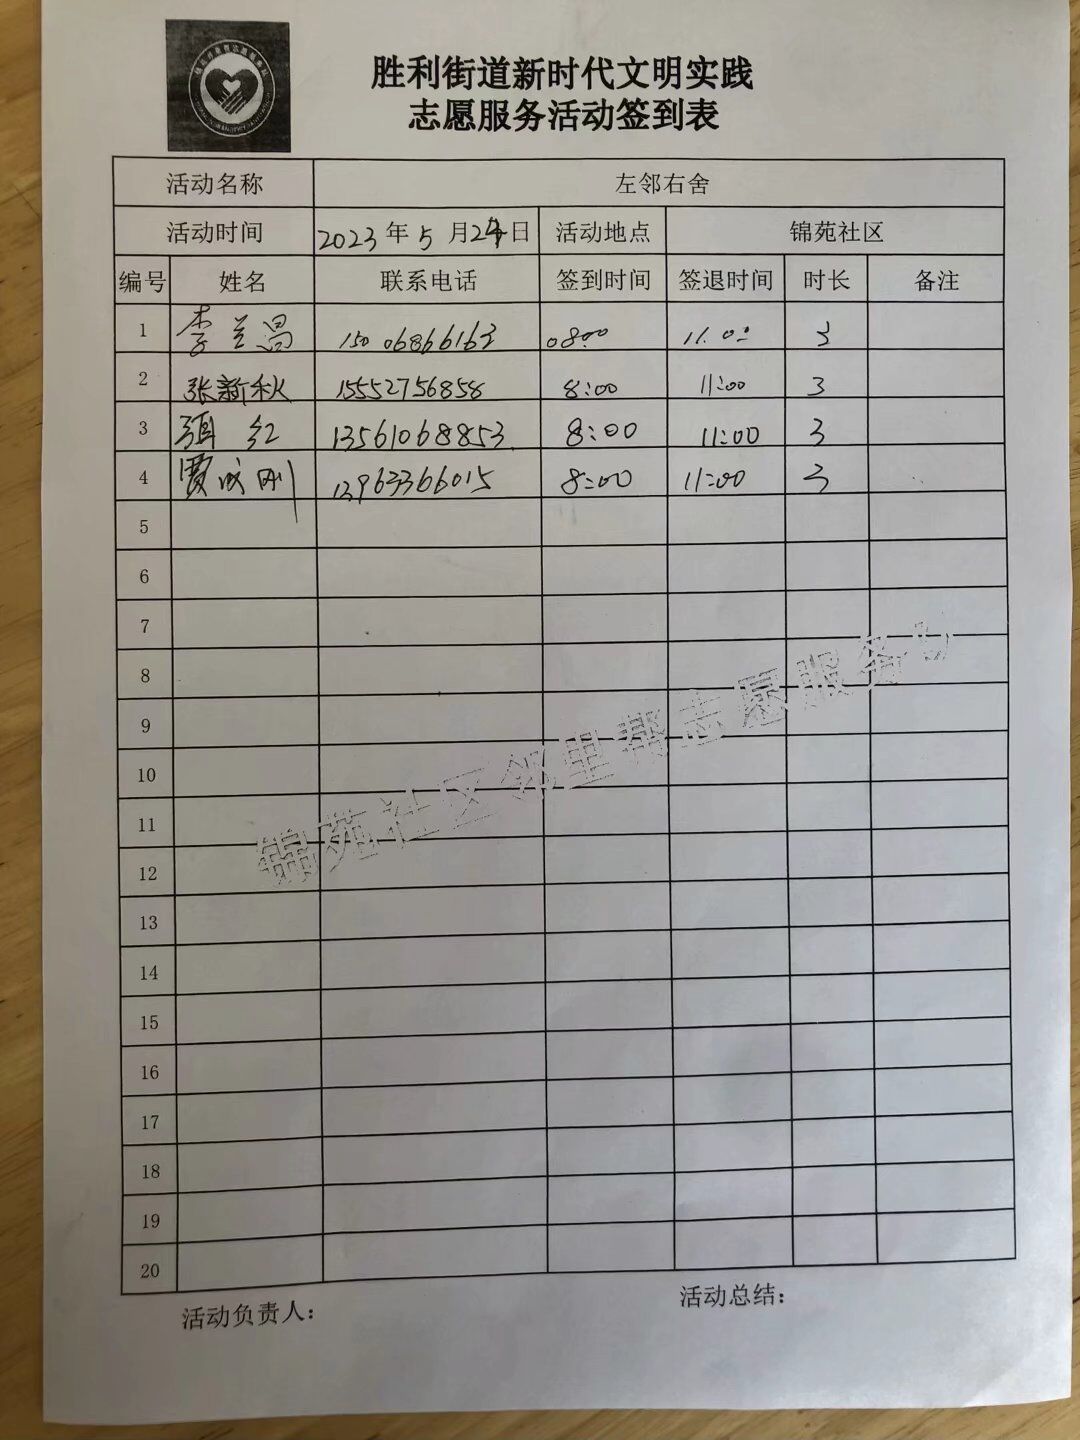 胜利街道新时代文明实践
志愿服务活动签到表
活动名称 左邻右舍
活动时间 2023年5月24日 活动地点 锦苑社区
编号 姓名 联系电话 签到时间 签退时间 时长 备注
1 李兰昌 15006866163 08:00 11:00 3
2 张新秋 15552756858 8:00 11:00 3
3 红 13561068853 8:00 11:00 3
4 贾成刚 13963366015 8:00 11:00 3
5
6
7
8
9
10
11
12
13
14
15
16
17
18
19
20
锦苑社区邻里帮志愿服务
活动负责人： 活动总结：